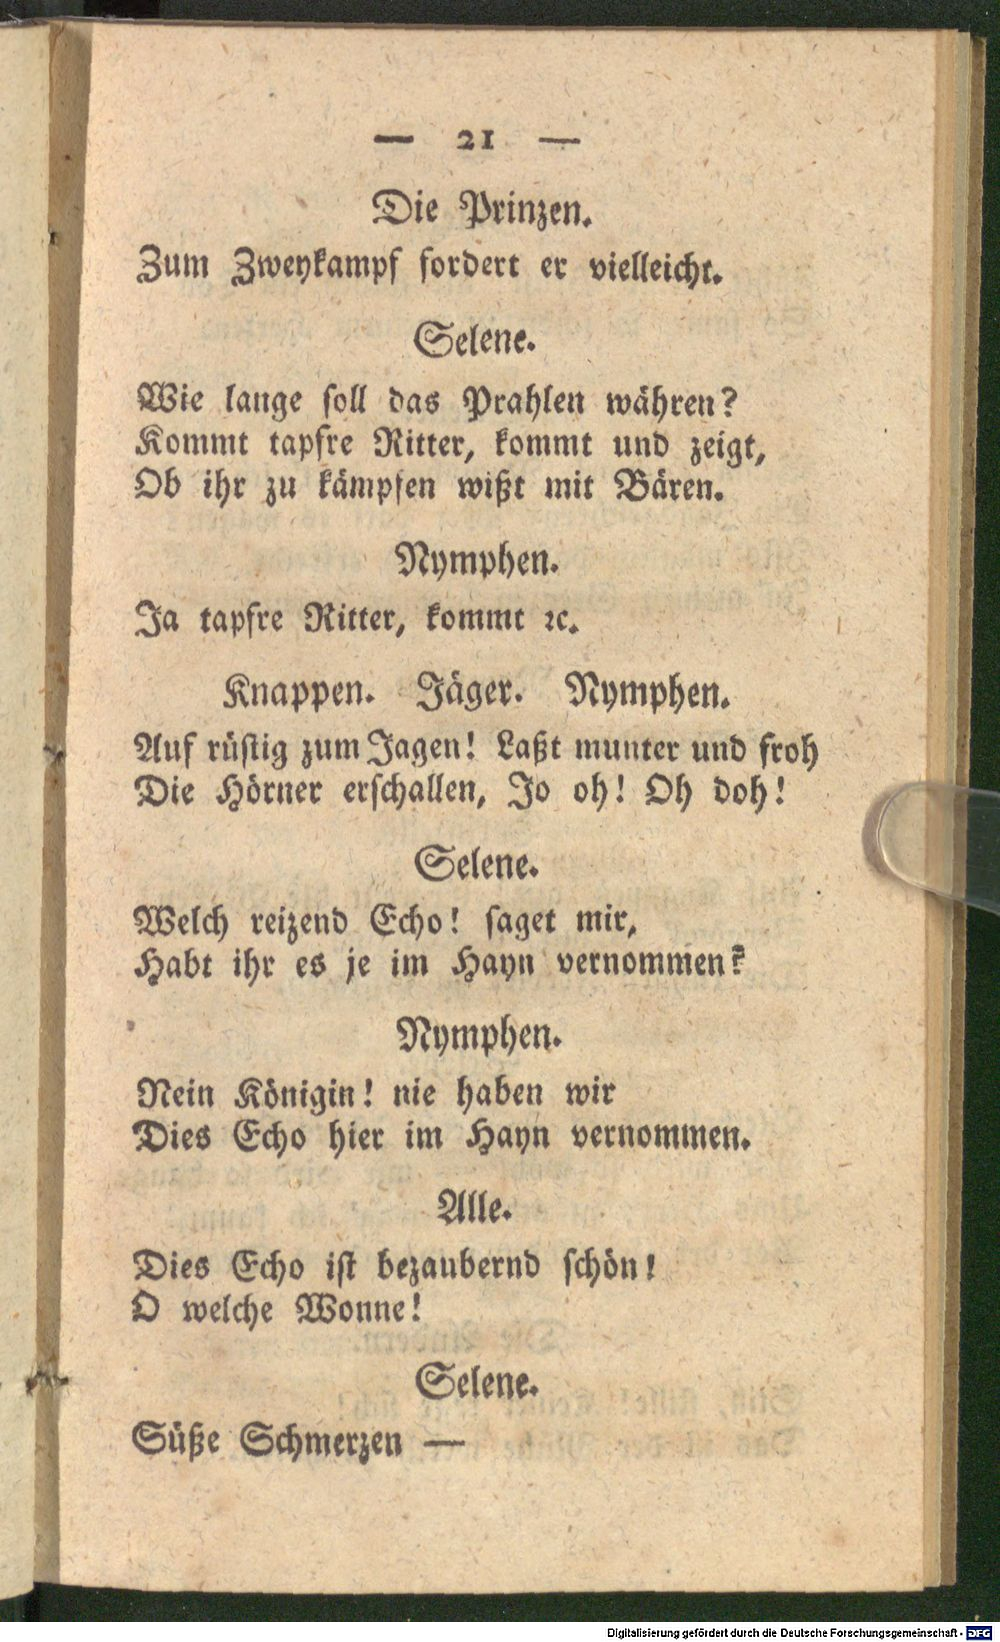 — 21 —
Die Prinzen.
Zum Zweykampf fordert er vielleicht.
Selene.
Wie lange soll das Prahlen währen?
Kommt tapfre Ritter, kommt und zeigt,
Ob ihr zu kämpfen wißt mit Bären.
Nymphen.
Ja tapfre Ritter, kommt ꝛc.
Knappen. Jäger. Nymphen.
Auf rüstig zum Jagen! Laßt munter und froh
Die Hörner erschallen, Jo oh! Oh doh!
Selene.
Welch reizend Echo! saget mir,
Habt ihr es je im Hayn vernommen?
Nymphen.
Nein Königin! nie haben wir
Dies Echo hier im Hayn vernommen.
Alle.
Dies Echo ist bezaubernd schön!
O welche Wonne!
Selene.
Süße Schmerzen —
Digitalisierung gefördert durch die Deutsche Forschungsgemeinschaft - DFG